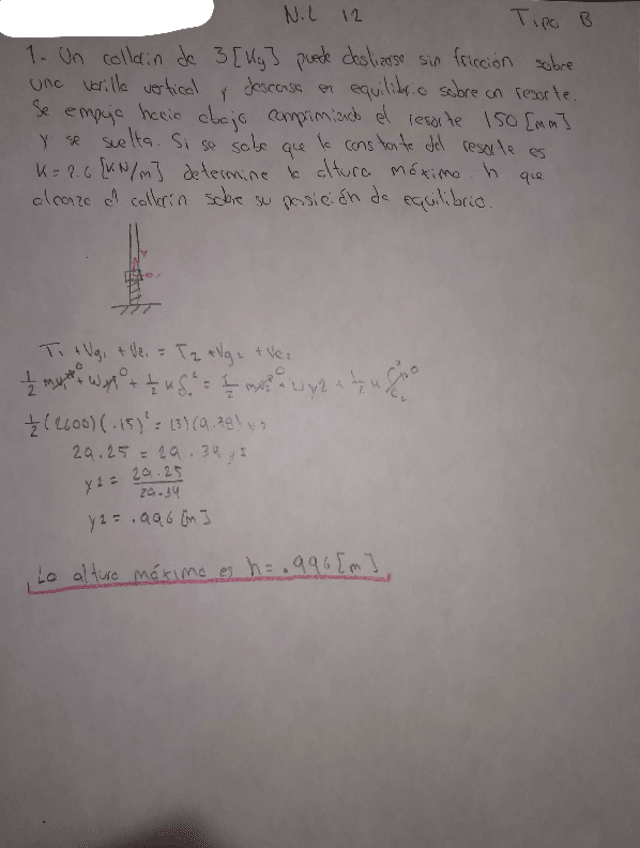 N.L 12 Tipo B
1.- Un collarin de 3 [Kg] puede deslizarse sin fricción sobre
una varilla vertical y descansa en equilibrio sobre un resorte.
Se empuja hacia abajo comprimiendo el resorte 150 [mm]
y se suelta. Si se sabe que la constante del resorte es
K=2.6 [KN/m] determine la altura máxima h que
alcanza el collarin sobre su posición de equilibrio.
T1 + Vg1 + Ve1 = T2 + Vg2 + Ve2
1/2 mv1² 0 + Wy1 0 + 1/2 k δ1² = 1/2 mv2² 0 + Wy2 + 1/2 k 0
1/2 (2600)(.15)² = (3)(9.78) y2
29.25 = 29.34 y2
y2 = 29.25/29.34
y2 = .996 [m]
La altura máxima es h= .996 [m]